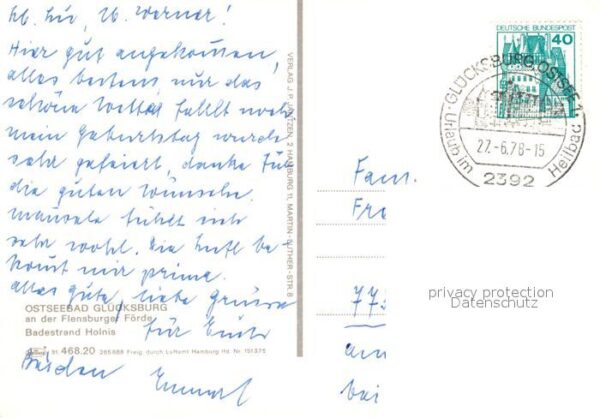 Werner!
Hier gut angekommen,
alles bestens, nur das
schöne Wetter fehlt noch
mein Geburtstag wurde
sehr gefeiert, danke für
die guten Wünsche.
fühlt sich
sehr wohl. Die Luft be-
kommt mir prima.
Alles Gute, liebe Grüsse
für Euch
Beiden
VERLAG J.P. JANTZEN, 2 HAMBURG 11, MARTIN-LUTHER-STR. 8
OSTSEEBAD GLÜCKSBURG
an der Flensburger Förde
Badestrand Holnis
468.20 265888 Freig. durch Luftamt Hamburg Nr. 151375
DEUTSCHE BUNDESPOST
40
GLÜCKSBURG, OSTSEE 1
27.-6.78-15
Urlaub im Heilbad
2392
Fam.
Fr
77
am
bei
privacy protection
Datenschutz